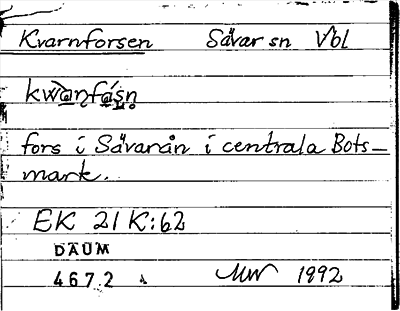 Kvarnforsen Sävar sn Vbl
kwa̱ṇfá̱ṣṇ̥
fors i Sävarån i centrala Bots-
mark.
EK 21 K:62
DAUM
4672 MW 1992